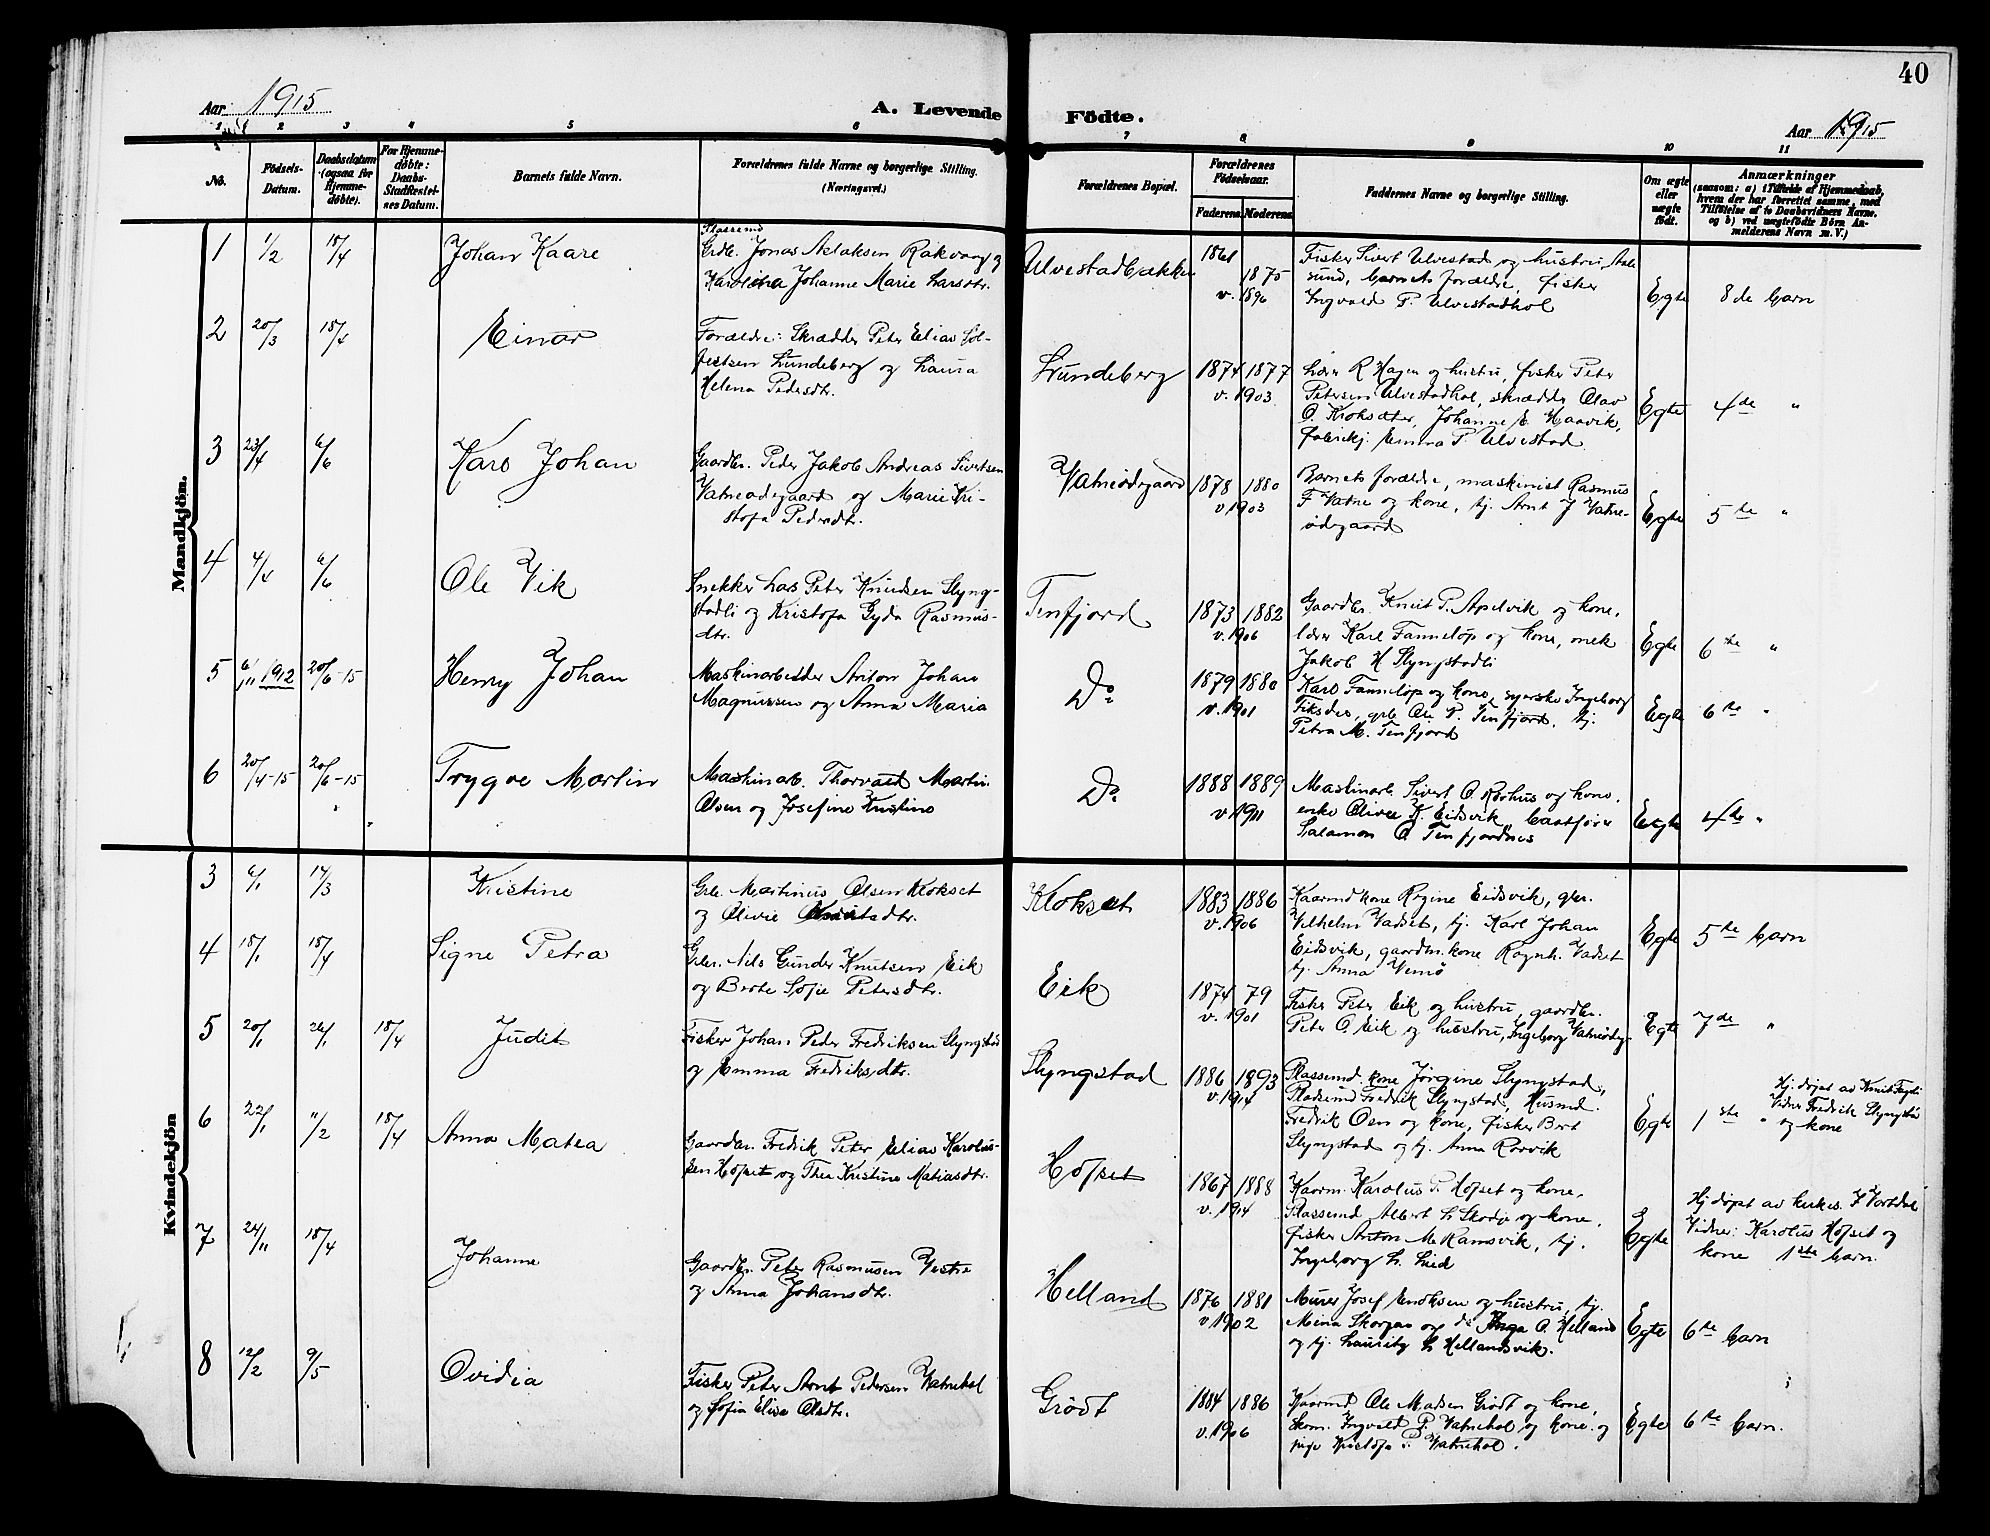 40
Aar 1915
A. Levende Födte.
Aar 1915
1 2 3 4 5 6 7 8 9 10 11
No.
Födsels-Datum.
Daabsdatum (ogsaa for Hjemme-döbte).
For Hjemme-döbte: Daabs-Stadfæstel-ses Datum.
Barnets fulde Navn.
Forældrenes fulde Navne og borgerlige Stilling.
(Næringsvei.)
Forældrenes Bopæl.
Forældrenes Födselsaar.
Faderens Moderens
Faddernes Navne og borgerlige Stilling.
Om ægte eller uægte födt.
Anmærkninger
(saasom: a) i Tilfælde af Hjemmedaab, hvem der har forrettet samme, med Tilföielse af to Daabsvidners Navne, og b) ved uægtefödte Börn Anmelderens Navn m. V.)
Mandkjön.
1 1/2 18/4 Johan Kaare
Plassemd
Grbr. Jonas Aslaksen Rakvaag og
Karolina Johanne Marie Larsdtr.
Ulvestadbakken
1861 1875
v. 1896
Fisker Sivert Ulvestad og hustru, Aale
sund, barnets forældre, fisker
Ingvald P. Ulvestadhol
Egte 8de barn
2 20/3 18/4 Einar
Forældre: Skrædder Peter Elias Sol-
festsen Lundeberg og Laura
Helena Pedersdtr.
Lundeberg
1874 1877
v. 1903
Lærer R Hagen og hustru, fisker Peter
Petersen Ulvestadhol, skrædder Olav
O Kroksæter, Johanne E. Haavik,
fabrikkj. Emma P. Ulvestad
Egte 4de "
3 23/4 6/6 Karl Johan
Gaardbr. Peder Jakob Andreas Sivertsen
Vatneødegaard og Marie Kri-
stofa Pedersdtr.
Vatneødegaard
1878 1880
v. 1903
Barnets forældre, maskinist Rasmus
F Vatne og kone, tj. Arnt J Vatne-
ødegaard
Egte 5te "
4 4/4 6/6 Ole Vik
Snekker Lars Peter Knudsen Slyng-
stadli og Kristofa Gyda Rasmus-
dtr.
Tenfjord
1873 1882
v. 1906
Gaardbr. Knut P. Apelvik og kone,
lærer Karl Tanneløp og kone, snek
Jakob K Slyngstadli
Egte 6te "
5 6/11 1912 20/6-15 Henry Johan
Maskinarbeider Anton Johan
Magnussen og Anna Maria
Do
1879 1880
v. 1901
Karl Tanneløp og kone, syerske Ingeborg
Fiksdal, grbr Ole P. Tenfjord, tj.
Petra M. Tenfjord
Egte 6te "
6 20/4-15 20/6-15 Trygve Martin
Maskinarb. Thorvald Martin
Olsen og Josefine Kristine
Do
1888 1889
v. 1911
Maskinarb. Sivert O. Rørhus og kone,
enke Olive K. Eidsvik, baatfører
Salamon O. Tenfjordnes
Egte 4de "
Kvindekjön
3 6/1 14/3 Kristine
Gbr. Martinus Olsen Klokset
og Olivie Knutsdtr.
Klokset
1883 1886
v. 1906
Kaarmd kone Regine Eidsvik, gbr.
Vilhelm Vadset, tj. Karl Johan
Eidsvik, gaardm. kone Ragnh. Vadset
tj. Anna Vemø
Egte 5te barn
4 18/1 18/4 Signe Petra
Gbr. Nils Gunder Knutsen Eik
og Berte Sofie Petersdtr.
Eik
1874 79
v. 1901
Fisker Peter Eik og hustru, gaardbr.
Peter O. Eik og hustru, Ingeborg Vatneødeg.
Egte 7de "
5 20/1 24/1 18/4 Judit
Fisker Johan Peder Fredriksen Slyngstad
og Emma Fredriksdtr.
Slyngstad
1886 1893
v. 1914
Plassemd. kone Jørgine Slyngstad,
Pladsemd Fredrik Slyngstad, Husmd.
Fredrik Oen og kone, fisker Bert
Slyngstad og tj. Anna Rørvik
Egte 1ste "
Hj. døpt av Knut
Vidner Fredrik Slyngstad
og kone
6 22/1 11/2 18/4 Anna Matea
Gaardbr. Fredrik Peter Elias Karolus-
sen Hofset og Thea Kristine Matiasdtr.
Hofset
1867 1888
v. 1914
Kaarm. Karolus P. Hofset og kone,
Plassemd Albert L. Skodje og kone,
fisker Anton M. Ramsvik, tj.
Ingeborg L. Lied
Egte
Hj døpt av kirkes. J Vartdal
Vidner: Karolus Hofset og
kone 1ste barn.
7 24/11 18/4 Johanne
Gaardbr. Peter Rasmusen Vestre
og Anna Johansdtr.
Helland
1876 1881
v. 1902
Murer Josef Eriksen og hustru, tj.
Mina Skorgen og do Inga O. Helland
og tj. Lauritz L Hellandsvik.
Egte 6te barn
8 12/2 9/5 Ovidia
Fisker Peter Arnt Pedersen Vatnehol
og Sofia Elise Olsdtr.
Grødt
1884 1886
v. 1906
Kaarmd Ole Madsen Grødt og kone,
Skom. Ingvald P. Vatnehol og kone og
pige Kristofa P. Vatnehol.
Egte 6te barn.